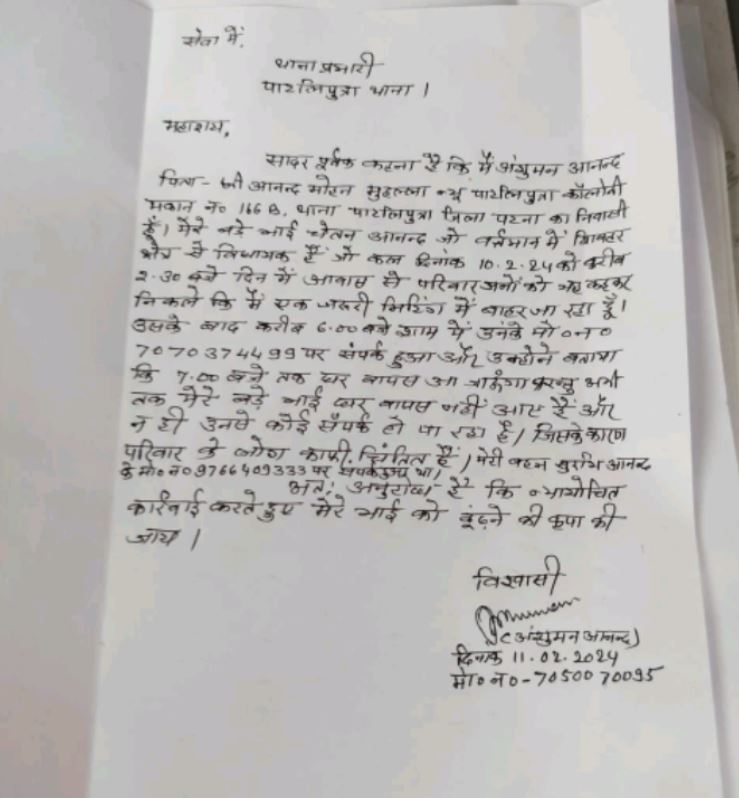 सेवा में,
थाना प्रभारी
पाटलिपुत्रा थाना ।
महाशय,
सादर पूर्वक कहना है कि मैं अंशुमन आनन्द
पिता - श्री आनन्द मोहन मुहल्ला न्यू पाटलिपुत्रा कॉलोनी
मकान न० 166 B, थाना पाटलिपुत्रा जिला पटना का निवासी
हूँ। मेरे बड़े भाई चेतन आनन्द जो वर्तमान में शिवहर
क्षेत्र से विधायक हैं जो कल दिनांक 10.2.24 को करीब
2.30 बजे दिन में आवास से परिवारजनों को यह कहकर
निकले कि मैं एक जरूरी मिटिंग में बाहर जा रहा हूँ।
उसके बाद करीब 6.00 बजे शाम में उनके मो०न०
7070374499 पर संपर्क हुआ और उन्होने बताया
कि 7.00 बजे तक घर वापस आ जाऊंगा परन्तु अभी
तक मेरे बड़े भाई घर वापस नहीं आए हैं और
न ही उनसे कोई संपर्क हो पा रहा है। जिसके कारण
परिवार के लोग काफी चिंतित हैं। मेरी बहन सुरभि आनन्द
के मो० न० 9766409333 पर संपर्क हुआ था।
अतः अनुरोध है कि न्यायोचित
कार्रवाई करते हुए मेरे भाई को ढूंढ़ने की कृपा की
जाय ।
विश्वासी
(अंशुमन आनन्द)
दिनांक 11.02.2024
मो० न० - 7050070095